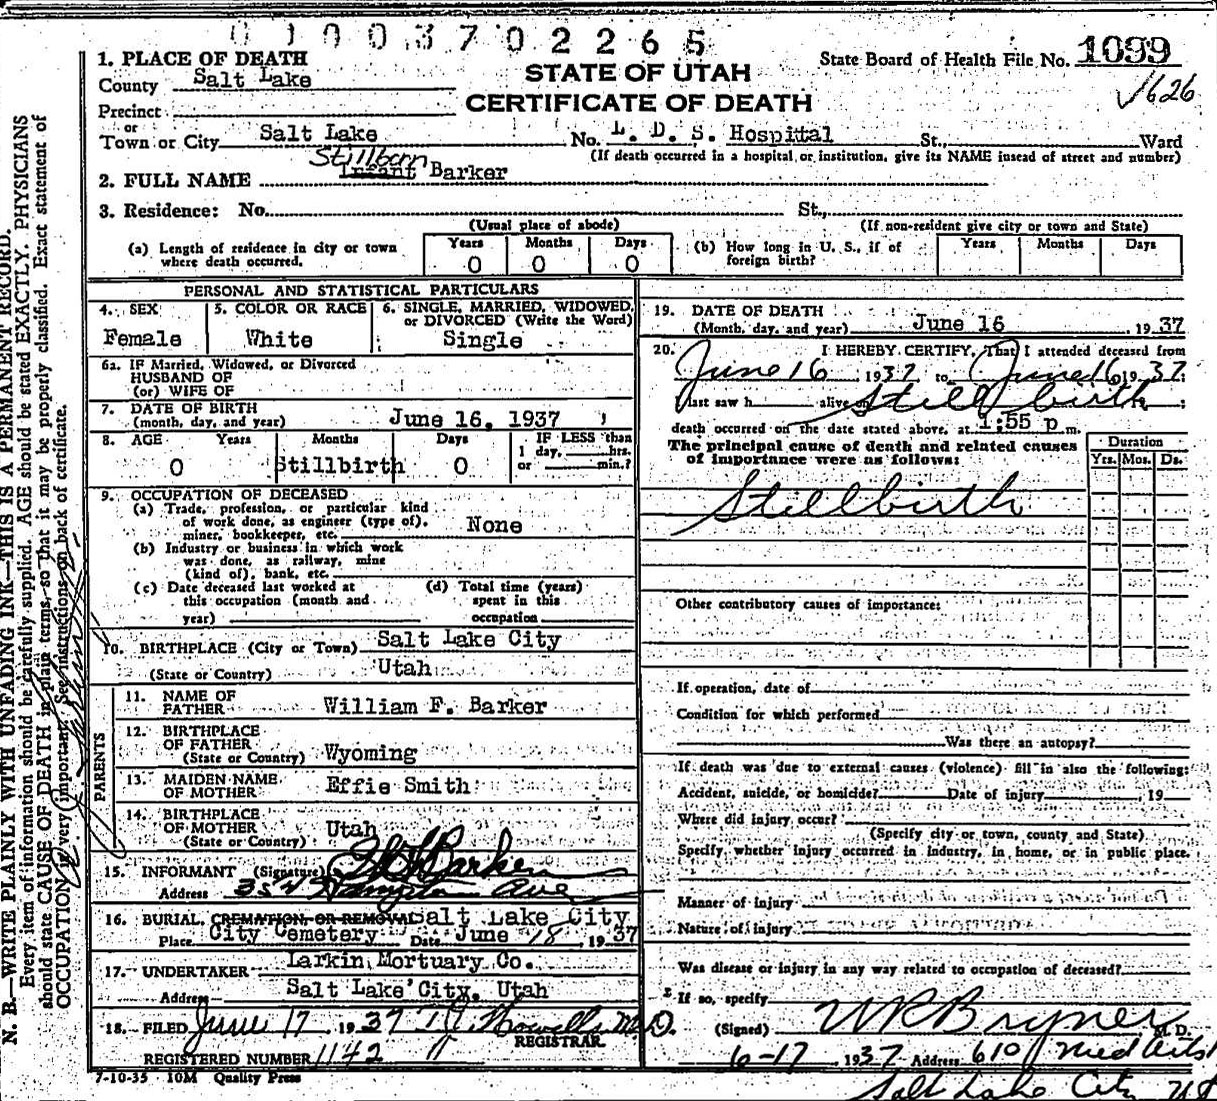 0 1 0 0 3 7 0 2 2 6 5
1. PLACE OF DEATH
County Salt Lake
STATE OF UTAH
CERTIFICATE OF DEATH
State Board of Health File No. 1099
1626
Precinct
or
Town or City Salt Lake No. L. D. S. Hospital St., Ward
(If death occurred in a hospital or institution, give its NAME insead of street and number)
Stillborn
2. FULL NAME Infant Barker
3. Residence: No. St.,
(Usual place of abode) (If non-resident give city or town and State)
(a) Length of residence in city or town where death occurred. Years 0 Months 0 Days 0
(b) How long in U. S., if of foreign birth? Years Months Days
PERSONAL AND STATISTICAL PARTICULARS
4. SEX Female
5. COLOR OR RACE White
6. SINGLE, MARRIED, WIDOWED, or DIVORCED (Write the Word) Single
6a. IF Married, Widowed, or Divorced
HUSBAND OF
(or) WIFE OF
7. DATE OF BIRTH
(month, day, and year) June 16, 1937
8. AGE Years 0 Months Stillbirth Days 0 IF LESS than 1 day, hrs. or min.?
9. OCCUPATION OF DECEASED
(a) Trade, profession, or particular kind
of work done, as engineer (type of).
miner, bookkeeper, etc. None
(b) Industry or business in which work
was done, as railway, mine
(kind of), bank, etc.
(c) Date deceased last worked at
this occupation (month and
year)
(d) Total time (years)
spent in this
occupation
10. BIRTHPLACE (City or Town) Salt Lake City
(State or Country) Utah
PARENTS
11. NAME OF
FATHER William F. Barker
12. BIRTHPLACE
OF FATHER
(State or Country) Wyoming
13. MAIDEN NAME
OF MOTHER Effie Smith
14. BIRTHPLACE
OF MOTHER
(State or Country) Utah
15. INFORMANT (Signature) Barker
Address 354 Hampton Ave
16. BURIAL, CREMATION, OR REMOVAL Salt Lake City
Place City Cemetery Date June 18, 1937
17. UNDERTAKER Larkin Mortuary Co.
Address Salt Lake City, Utah
18. FILED June 17, 1937 Howells M.D.
REGISTRAR
REGISTERED NUMBER 1142
7-10-35 10M Quality Press
19. DATE OF DEATH
(Month, day, and year) June 16, 1937
20. I HEREBY CERTIFY, That I attended deceased from
June 16, 1937 to June 16, 1937
last saw h alive on Stillbirth 19 ;
death occurred on the date stated above, at 1:55 p m.
The principal cause of death and related causes
of importance were as follows:
Duration
Yrs. Mos. Ds.
Stillbirth
Other contributory causes of importance:
If operation, date of
Condition for which performed
Was there an autopsy?
If death was due to external causes (violence) fill in also the following:
Accident, suicide, or homicide? Date of injury , 19
Where did injury occur?
(Specify city or town, county and State)
Specify whether injury occurred in industry, in home, or in public place.
Manner of injury
Nature of injury
Was disease or injury in any way related to occupation of deceased?
If so, specify
(Signed) W R Bryner M. D.
6-17, 1937 Address 610 Med Arts
Salt Lake City
N. B.—WRITE PLAINLY WITH UNFADING INK—THIS IS A PERMANENT RECORD.
Every item of information should be carefully supplied. AGE should be stated EXACTLY. PHYSICIANS
should state CAUSE OF DEATH in plain terms, so that it may be properly classified. Exact statement of
OCCUPATION is very important. See instructions on back of certificate.